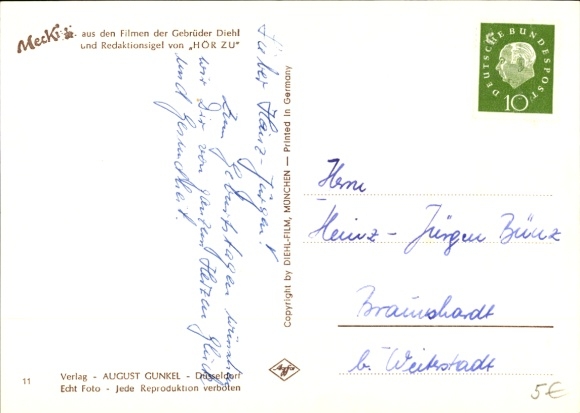 Mecki - aus den Filmen der Gebrüder Diehl
und Redaktionsigel von „HÖR ZU"
Lieber Heinz-Jürgen!
Zum Geburtstagen wünschen
wir Dir von ganzem Herzen Glück
und Gesundheit.
Copyright by DIEHL-FILM, MÜNCHEN — Printed in Germany
DEUTSCHE BUNDESPOST
10
Herrn
Heinz-Jürgen Bünz
Braunshardt
b. Weiterstadt
Agfa
11
Verlag - AUGUST GUNKEL - Düsseldorf
Echt Foto - Jede Reproduktion verboten
5€